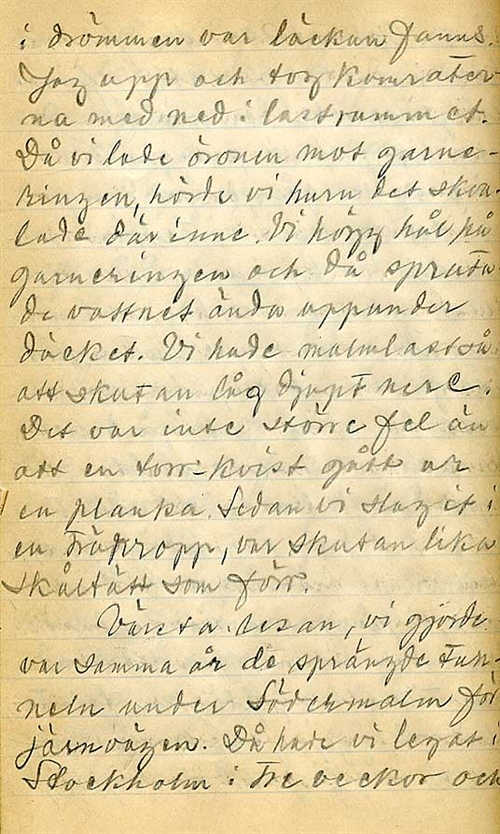 i drömmen var läckan fanns.
Jag upp och tog kamrater-
na med ned i lastrummet.
Då vi lade öronen mot garne-
ringen, hörde vi huru det skva-
lade där inne. Vi högg hål på
garneringen och då spruta-
de vattnet ända uppunder
däcket. Vi hade malmlast så
att skutan låg djupt nere.
Det var inte större fel än
att en torr kvist gått ur
en planka. Sedan vi slagit i
en träpropp, var skutan lika
skåltätt som förr.
Värsta resan, vi gjorde
var samma år de sprängde tun-
neln under Södermalm för
järnvägen. Då hade vi legat i
Stockholm i tre veckor och